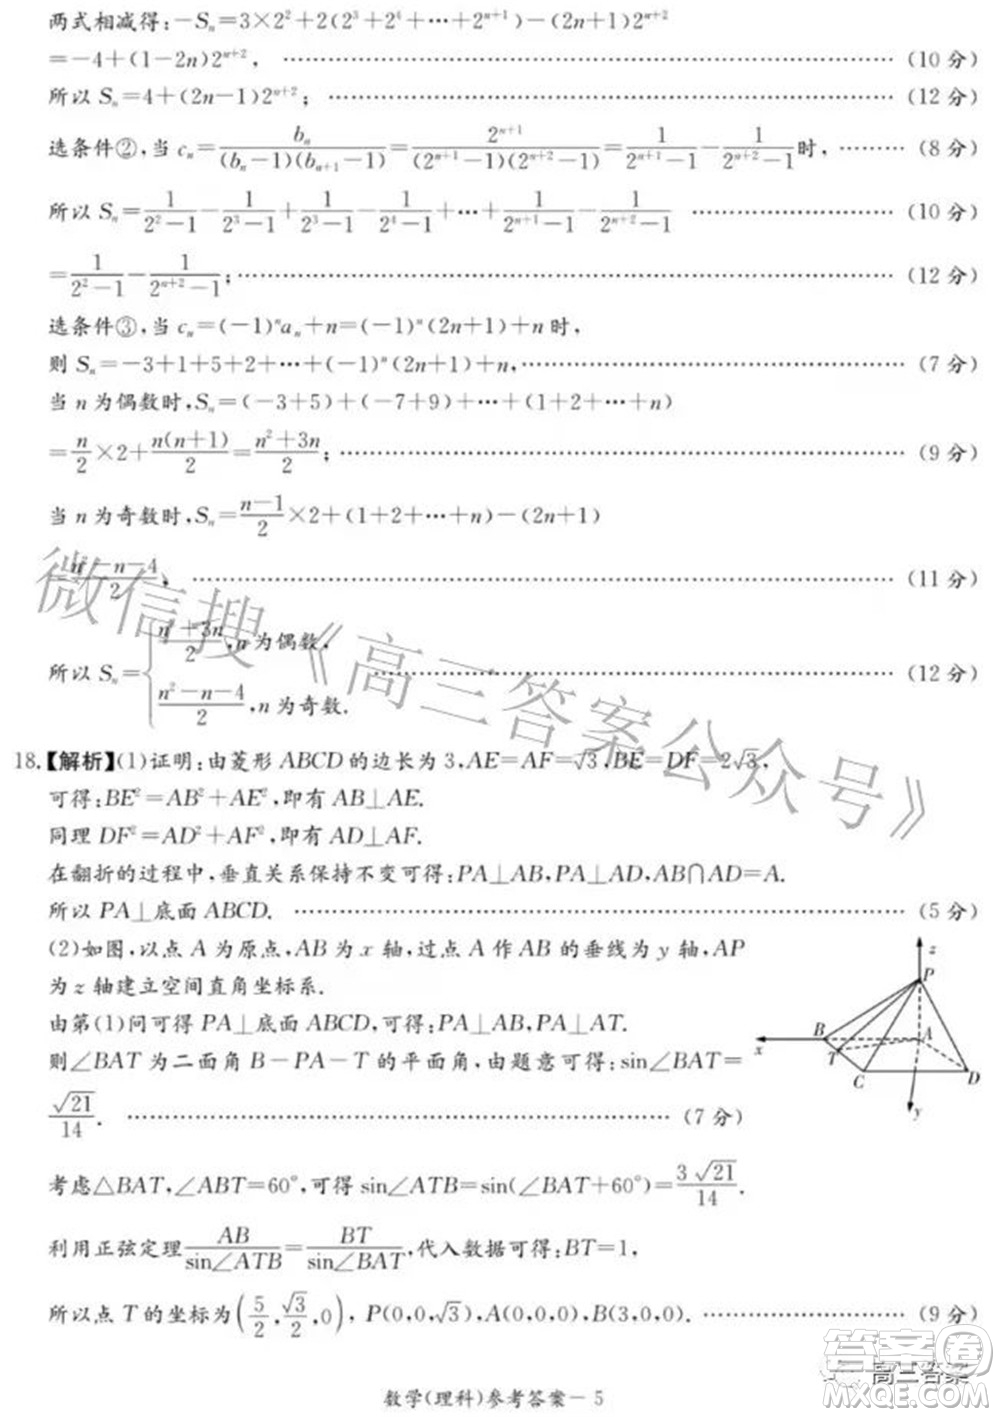 两式相减得:-Sₙ=3×2²+2(2³+2⁴+⋯+2ⁿ⁺¹)-(2n+1)2ⁿ⁺²
=-4+(1-2n)2ⁿ⁺², ⋯⋯ (10 分)
所以 Sₙ=4+(2n-1)2ⁿ⁺²; ⋯⋯ (12 分)
选条件②,当 cₙ=bₙ/((bₙ-1)(bₙ₊₁-1))=2ⁿ⁺¹/((2ⁿ⁺¹-1)(2ⁿ⁺²-1))=1/(2ⁿ⁺¹-1)-1/(2ⁿ⁺²-1)时, ⋯⋯ (8 分)
所以 Sₙ=1/(2²-1)-1/(2³-1)+1/(2³-1)-1/(2⁴-1)+⋯+1/(2ⁿ⁺¹-1)-1/(2ⁿ⁺²-1) ⋯⋯ (10 分)
=1/(2²-1)-1/(2ⁿ⁺²-1); ⋯⋯ (12 分)
选条件③,当 cₙ=(-1)ⁿaₙ+n=(-1)ⁿ(2n+1)+n 时,
则 Sₙ=-3+1+5+2+⋯+(-1)ⁿ(2n+1)+n, ⋯⋯ (7 分)
当 n 为偶数时,Sₙ=(-3+5)+(-7+9)+⋯+(1+2+⋯+n)
=n/2×2+n(n+1)/2=(n²+3n)/2; ⋯⋯ (9 分)
当 n 为奇数时,Sₙ=(n-1)/2×2+(1+2+⋯+n)-(2n+1)
=(n²-n-4)/2, ⋯⋯ (11 分)
所以 Sₙ={(n²+3n)/2,n 为偶数,
(n²-n-4)/2,n 为奇数. ⋯⋯ (12 分)
18.【解析】(1)证明:由菱形 ABCD 的边长为 3,AE=AF=√3,BE=DF=2√3,
可得:BE²=AB²+AE²,即有 AB⊥AE.
同理 DF²=AD²+AF²,即有 AD⊥AF.
在翻折的过程中,垂直关系保持不变可得:PA⊥AB,PA⊥AD,AB∩AD=A.
所以 PA⊥底面 ABCD. ⋯⋯ (5 分)
(2)如图,以点 A 为原点,AB 为 x 轴,过点 A 作 AB 的垂线为 y 轴,AP
为 z 轴建立空间直角坐标系.
由第(1)问可得 PA⊥底面 ABCD,可得:PA⊥AB,PA⊥AT.
则∠BAT 为二面角 B-PA-T 的平面角,由题意可得:sin∠BAT=
√21/14. ⋯⋯ (7 分)
z
P
B
A
x
T
C
D
y
考虑△BAT,∠ABT=60°,可得 sin∠ATB=sin(∠BAT+60°)=3√21/14.
利用正弦定理AB/sin∠ATB=BT/sin∠BAT,代入数据可得:BT=1,
所以点 T 的坐标为(5/2,√3/2,0),P(0,0,√3),A(0,0,0),B(3,0,0). ⋯⋯ (9 分)
数学(理科)参考答案-5
微信搜《高三答案公众号》
高三答案
答案圈
MXQE.COM